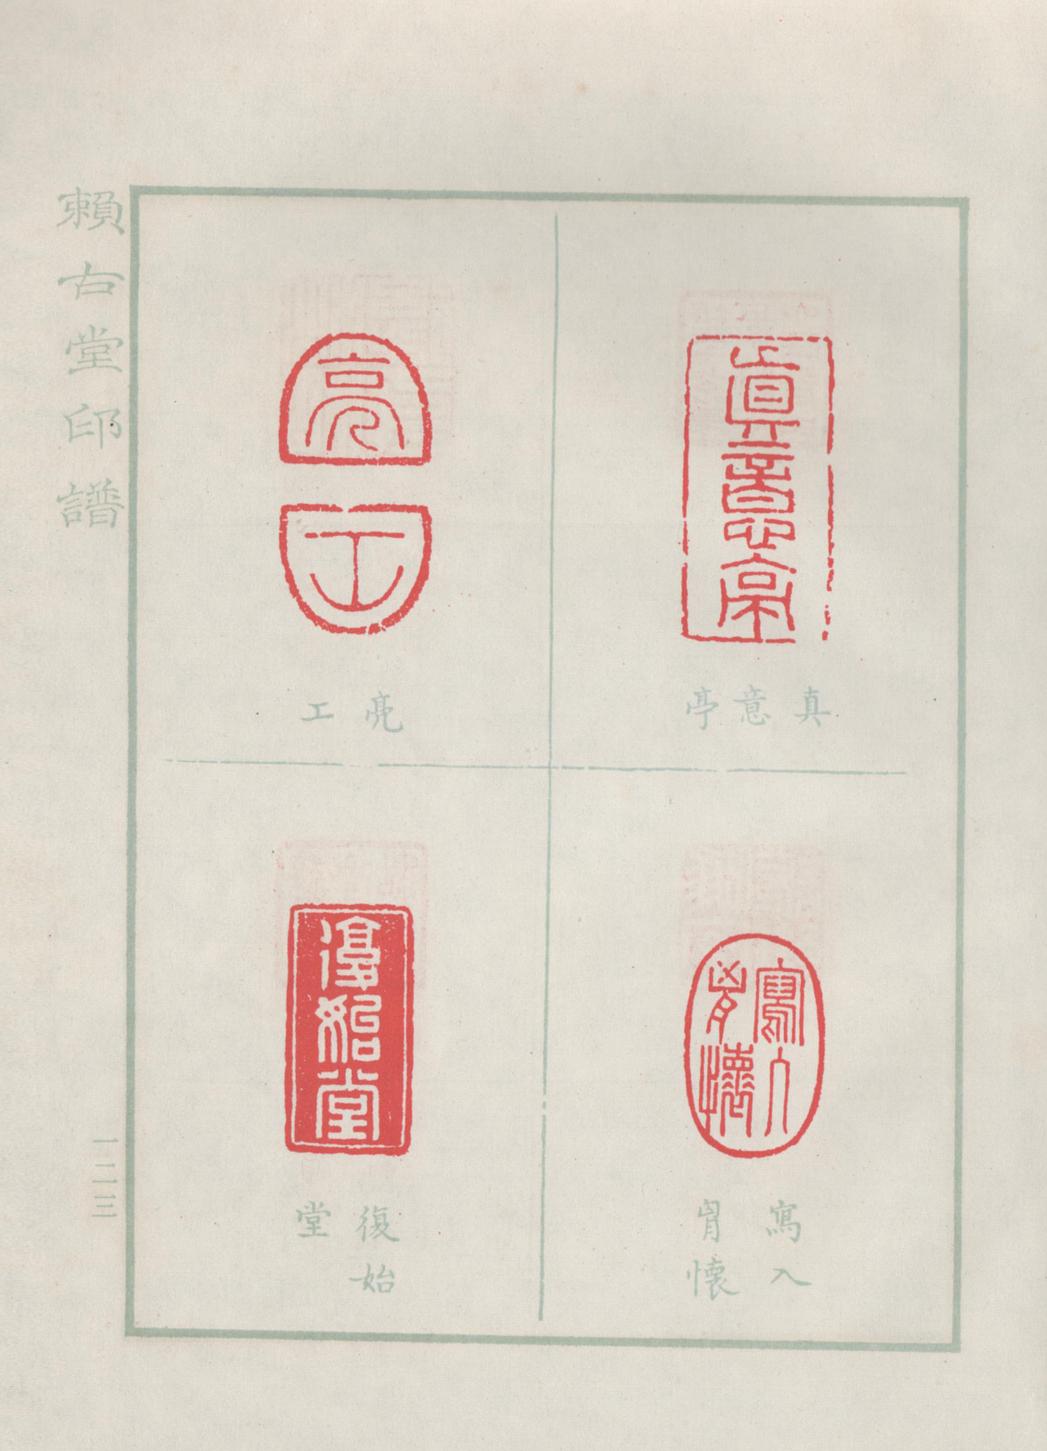 賴古堂印譜
眞意亭
真意亭
寫入
胷懷
寫入
胷懷
亮
工
亮工
復始堂
復始
堂
一二三